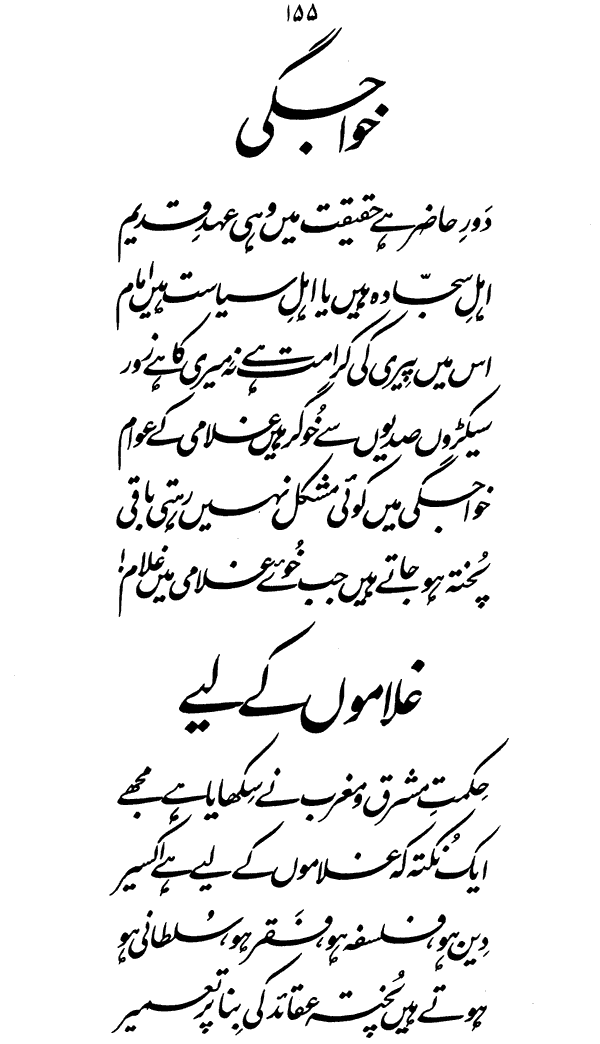 ۱۵۵
خواجگی
دَورِ حاضر ہے حقیقت میں وہی عہدِ قدیم
اہلِ سجّادہ ہیں یا اہلِ سیاست ہیں امام
اس میں پِیری کی کرامت ہے نہ مِیری کا ہے زور
سیکڑوں صدیوں سے خُوگر ہیں غلامی کے عوام
خواجگی میں کوئی مشکل نہیں رہتی باقی
پُختہ ہو جاتے ہیں جب خُوئے غلامی میں غلام!
غلاموں کے لیے
حِکمتِ مشرق و مغرب نے سِکھایا ہے مجھے
ایک نُکتہ کہ غلاموں کے لیے ہے اِکسیر
دِین ہو، فلسفہ ہو، فَقر ہو، سُلطانی ہو
ہوتے ہیں پُختہ عقائد کی بِنا پر تعمیر